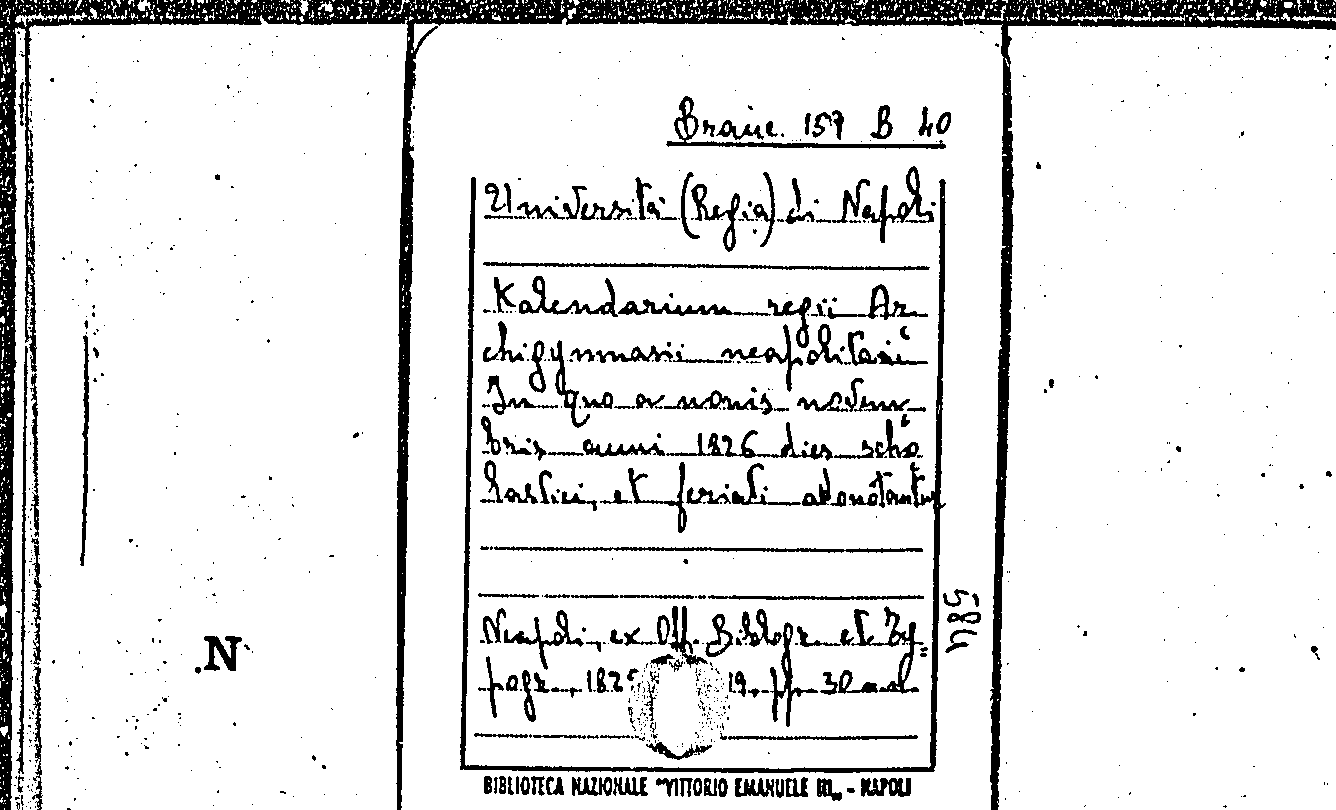 Branc. 157 B 40
Università (Regia) di Napoli
Kalendarium regii Ar-
chigymnasii neapolitani
In quo a nonis novem-
bris anni 1826 dies scho
lastici, et feriati adnotantur
Neapoli, ex Off. Bibliogr. et Ty=
pogr., 182 19, pp. 30
N
BIBLIOTECA NAZIONALE "VITTORIO EMANUELE III„ - NAPOLI